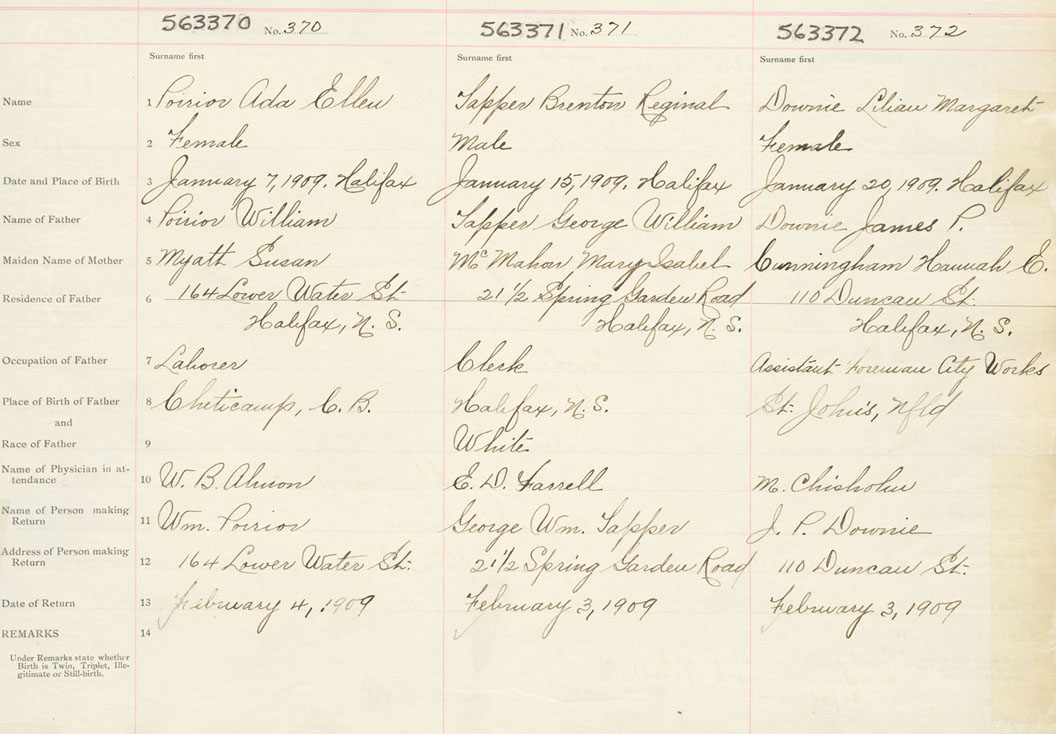 563370 No. 370 563371 No. 371 563372 No. 372
Surname first Surname first Surname first
Name 1 Poirior Ada Ellen Tapper Brenton Reginal Downie Lilian Margaret
Sex 2 Female Male Female
Date and Place of Birth 3 January 7, 1909. Halifax January 15, 1909. Halifax January 20, 1909. Halifax
Name of Father 4 Poirior William Tapper George William Downie James P.
Maiden Name of Mother 5 Myatt Susan McMahon Mary Isabel Cunningham Hannah E.
Residence of Father 6 164 Lower Water St. 21 1/2 Spring Garden Road 110 Duncan St.
Halifax, N. S. Halifax, N. S. Halifax, N. S.
Occupation of Father 7 Laborer Clerk Assistant Foreman City Works
Place of Birth of Father 8 Chiticamp, C. B. Halifax, N. S. St. John's, Nfld
and
Race of Father 9 White
Name of Physician in at-
tendance 10 W. B. Almon E. D. Farrell M. Chisholm
Name of Person making
Return 11 Wm. Poirior George Wm. Tapper J. P. Downie
Address of Person making
Return 12 164 Lower Water St. 21 1/2 Spring Garden Road 110 Duncan St.
Date of Return 13 February 4, 1909 February 3, 1909 February 3, 1909
REMARKS 14
Under Remarks state whether
Birth is Twin, Triplet, Ille-
gitimate or Still-birth.